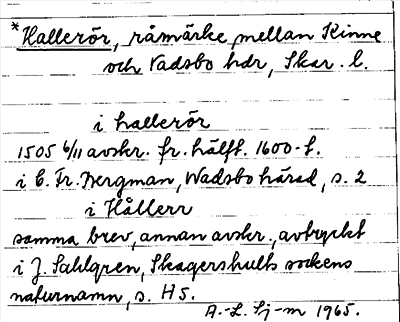 *Hallerör, råmärke mellan Kinne
och Vadsbo hdr, Skar. l.
i hallerör
1505 6/11 avskr. fr. hälft. 1600-t.
i C. Fr. Bergman, Wadsbo härad, s. 2
i Hållerr
samma brev, annan avskr., avtryckt
i J. Sahlgren, Skagershults sockens
naturnamn, s. H5.
A.-L. Sj-m 1965.